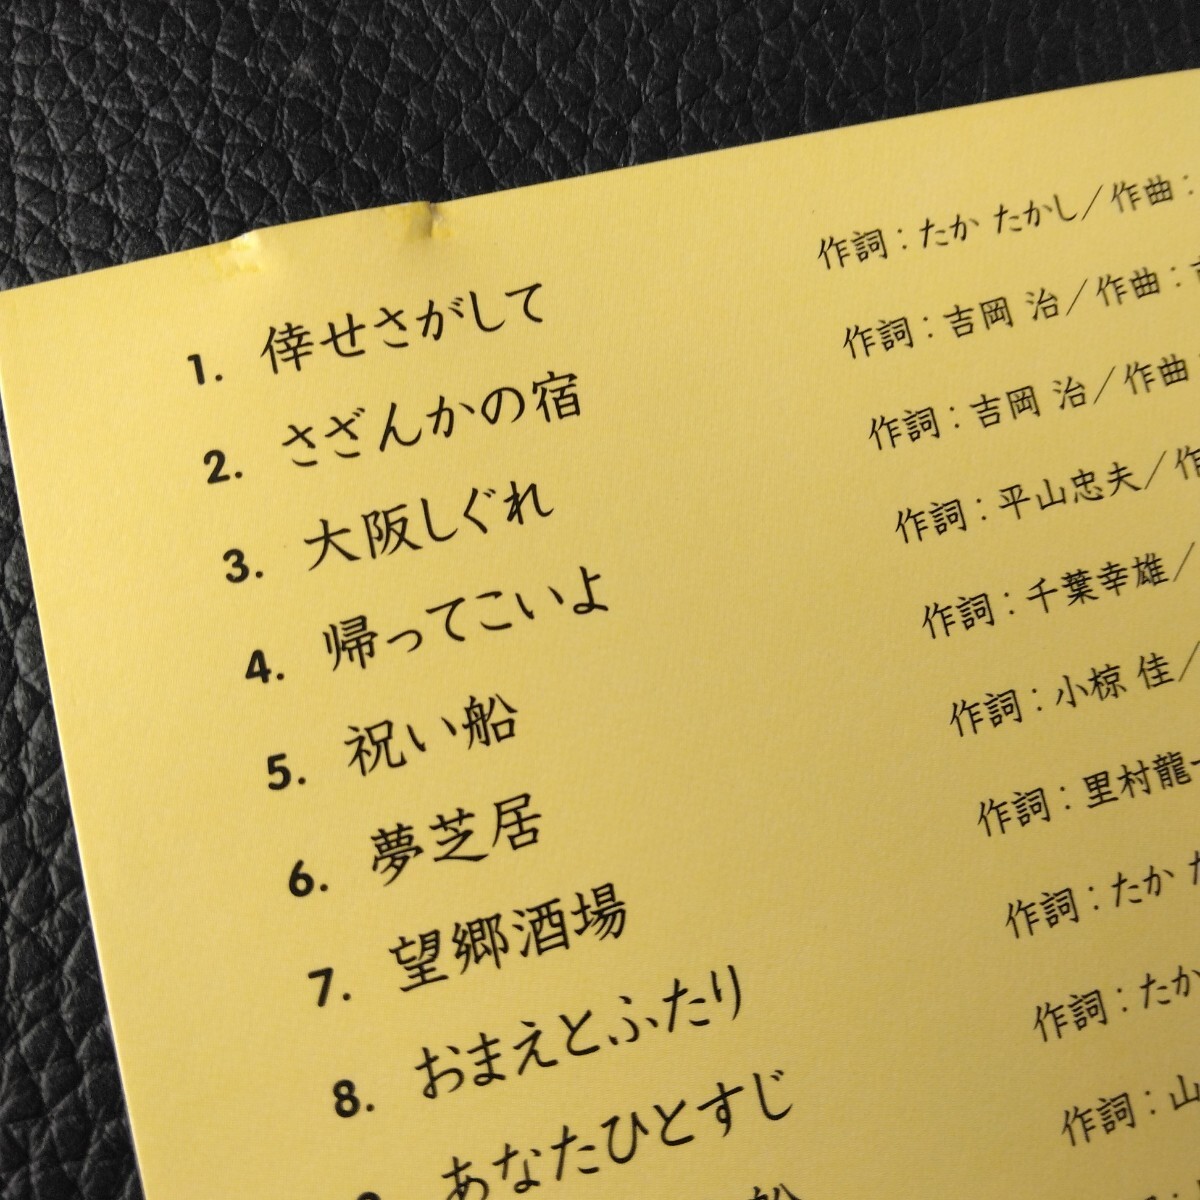 1. 倖せさがして 作詞：たか たかし／作曲：
2. さざんかの宿 作詞：吉岡 治／作曲：
3. 大阪しぐれ 作詞：吉岡 治／作曲
4. 帰ってこいよ 作詞：平山忠夫／作
5. 祝い船 作詞：千葉幸雄／
6. 夢芝居 作詞：小椋 佳／
7. 望郷酒場 作詞：里村龍一
8. おまえとふたり 作詞：たか た
あなたひとすじ 作詞：たか
船 作詞：山